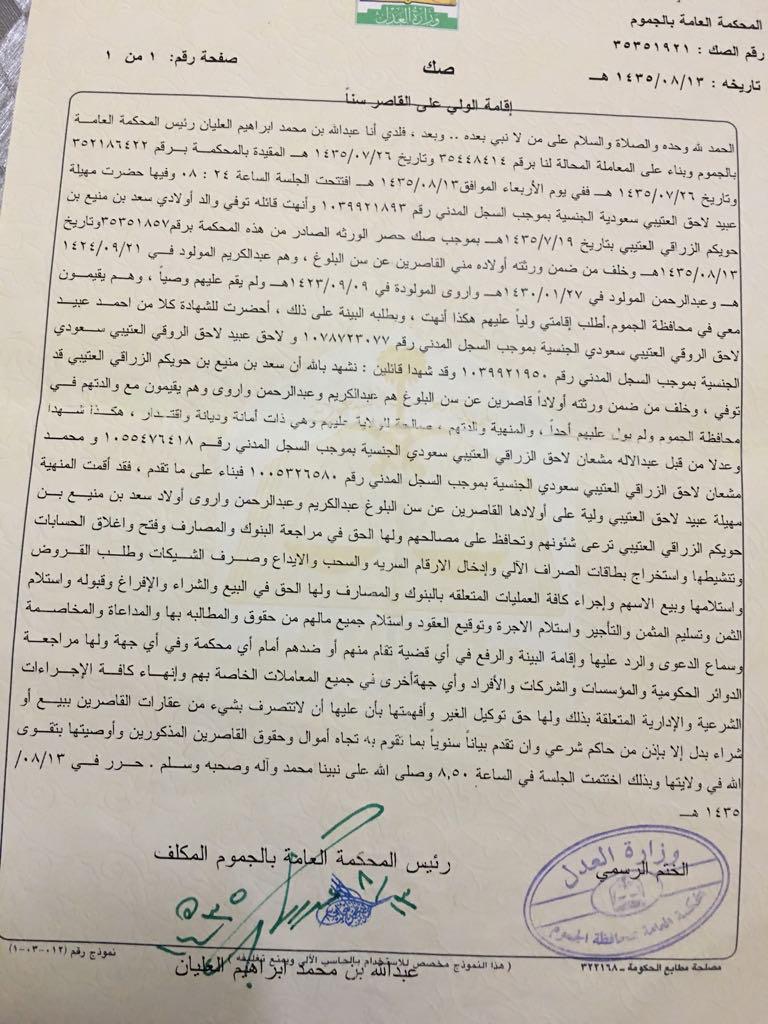 وزارة العدل
المحكمة العامة بالجموم
رقم الصك : ٣٥٣٥١٩٢١
تاريخه : ١٤٣٥/٠٨/١٣ هـ
صفحة رقم: ١ من ١
صك
إقامة الولي على القاصر سناً
الحمد لله وحده والصلاة والسلام على من لا نبي بعده .. وبعد ، فلدي أنا عبدالله بن محمد ابراهيم العليان رئيس المحكمة العامة
بالجموم وبناء على المعاملة المحالة لنا برقم ٣٥٤٤٨٤١٤ وتاريخ ١٤٣٥/٠٧/٢٦ هـ المقيدة بالمحكمة برقم ٣٥٢١٨٦٤٢٢
وتاريخ ١٤٣٥/٠٧/٢٦ هـ ففي يوم الأربعاء الموافق١٤٣٥/٠٨/١٣هـ افتتحت الجلسة الساعة ٢٤ : ٠٨ وفيها حضرت مهيلة
عبيد لاحق العتيبي سعودية الجنسية بموجب السجل المدني رقم ١٠٣٩٩٢١٨٩٣ وأنهت قائله توفي والد أولادي سعد بن منيع بن
حويكم الزراقي العتيبي بتاريخ ١٤٣٥/٧/١٩هـ بموجب صك حصر الورثه الصادر من هذه المحكمة برقم٣٥٣٥١٨٥٧وتاريخ
١٤٣٥/٠٨/١٣هـ وخلف من ضمن ورثته أولاده مني القاصرين عن سن البلوغ ، وهم عبدالكريم المولود في ١٤٢٤/٠٩/٢١
هـ وعبدالرحمن المولود في ١٤٣٠/٠١/٢٧هـ واروى المولودة في ١٤٢٣/٠٩/٠٩هـ ولم يقم عليهم وصياً ، وهم يقيمون
معي في محافظة الجموم.أطلب إقامتي ولياً عليهم هكذا أنهت ، وبطلبه البينة على ذلك ، أحضرت للشهادة كلا من احمد عبيد
لاحق الروقي العتيبي سعودي الجنسية بموجب السجل المدني رقم ١٠٧٨٧٢٣٠٧٧ و لاحق عبيد لاحق الروقي العتيبي سعودي
الجنسية بموجب السجل المدني رقم ١٠٣٩٩٢١٩٥٠ وقد شهدا قائلين : نشهد بالله أن سعد بن منيع بن حويكم الزراقي العتيبي قد
توفي ، وخلف من ضمن ورثته أولاداً قاصرين عن سن البلوغ هم عبدالكريم وعبدالرحمن واروى وهم يقيمون مع والدتهم في
محافظة الجموم ولم يول عليهم أحداً ، والمنهية والدتهم ، صالحة للولاية عليهم وهي ذات أمانة وديانة واقتدار ، هكذا شهدا
وعدلا من قبل عبدالاله مشعان لاحق الزراقي العتيبي سعودي الجنسية بموجب السجل المدني رقم ١٠٥٥٤٧٦٤١٨ و محمد
مشعان لاحق الزراقي العتيبي سعودي الجنسية بموجب السجل المدني رقم ١٠٠٥٣٢٦٥٨٠ فبناء على ما تقدم ، فقد أقمت المنهية
مهيلة عبيد لاحق العتيبي ولية على أولادها القاصرين عن سن البلوغ عبدالكريم وعبدالرحمن واروى أولاد سعد بن منيع بن
حويكم الزراقي العتيبي ترعى شئونهم وتحافظ على مصالحهم ولها الحق في مراجعة البنوك والمصارف وفتح واغلاق الحسابات
وتنشيطها واستخراج بطاقات الصراف الآلي وإدخال الارقام السريه والسحب والايداع وصرف الشيكات وطلب القروض
واستلامها وبيع الاسهم وإجراء كافة العمليات المتعلقه بالبنوك والمصارف ولها الحق في البيع والشراء والإفراغ وقبوله واستلام
الثمن وتسليم المثمن والتأجير واستلام الاجرة وتوقيع العقود واستلام جميع مالهم من حقوق والمطالبه بها والمداعاة والمخاصمة
وسماع الدعوى والرد عليها وإقامة البينة والرفع في أي قضية تقام منهم أو ضدهم أمام أي محكمة وفي أي جهة ولها مراجعة
الدوائر الحكومية والمؤسسات والشركات والأفراد وأي جهةأخرى في جميع المعاملات الخاصة بهم وإنهاء كافة الإجراءات
الشرعية والإدارية المتعلقة بذلك ولها حق توكيل الغير وأفهمتها بأن عليها أن لاتتصرف بشيء من عقارات القاصرين ببيع أو
شراء بدل إلا بإذن من حاكم شرعي وان تقدم بياناً سنوياً بما تقوم به تجاه أموال وحقوق القاصرين المذكورين وأوصيتها بتقوى
الله في ولايتها وبذلك اختتمت الجلسة في الساعة ٨,٥٠ وصلى الله على نبينا محمد وآله وصحبه وسلم . حرر في ٠٨/١٣/
١٤٣٥ هـ
رئيس المحكمة العامة بالجموم المكلف
الختم الرسمي
وزارة العدل
المحكمة العامة بمحافظة الجموم
٨/١٣
عبدالله بن محمد ابراهيم العليان
مصلحة مطابع الحكومة – ٣٢٢١٦٨
( هذا النموذج مخصص للاستخدام بالحاسب الآلي ويمنع تغليفه )
نموذج رقم (١٢-٠٣-٠١)